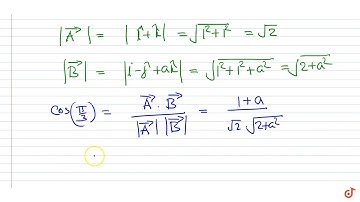 |A⃗| = |î+k̂| = √(1²+1²) = √2
|B⃗| = |î-ĵ+ak̂| = √(1²+1²+a²) = √(2+a²)
cos(π/3) = A⃗.B⃗ / |A⃗| |B⃗| = 1+a / √2 √(2+a²)